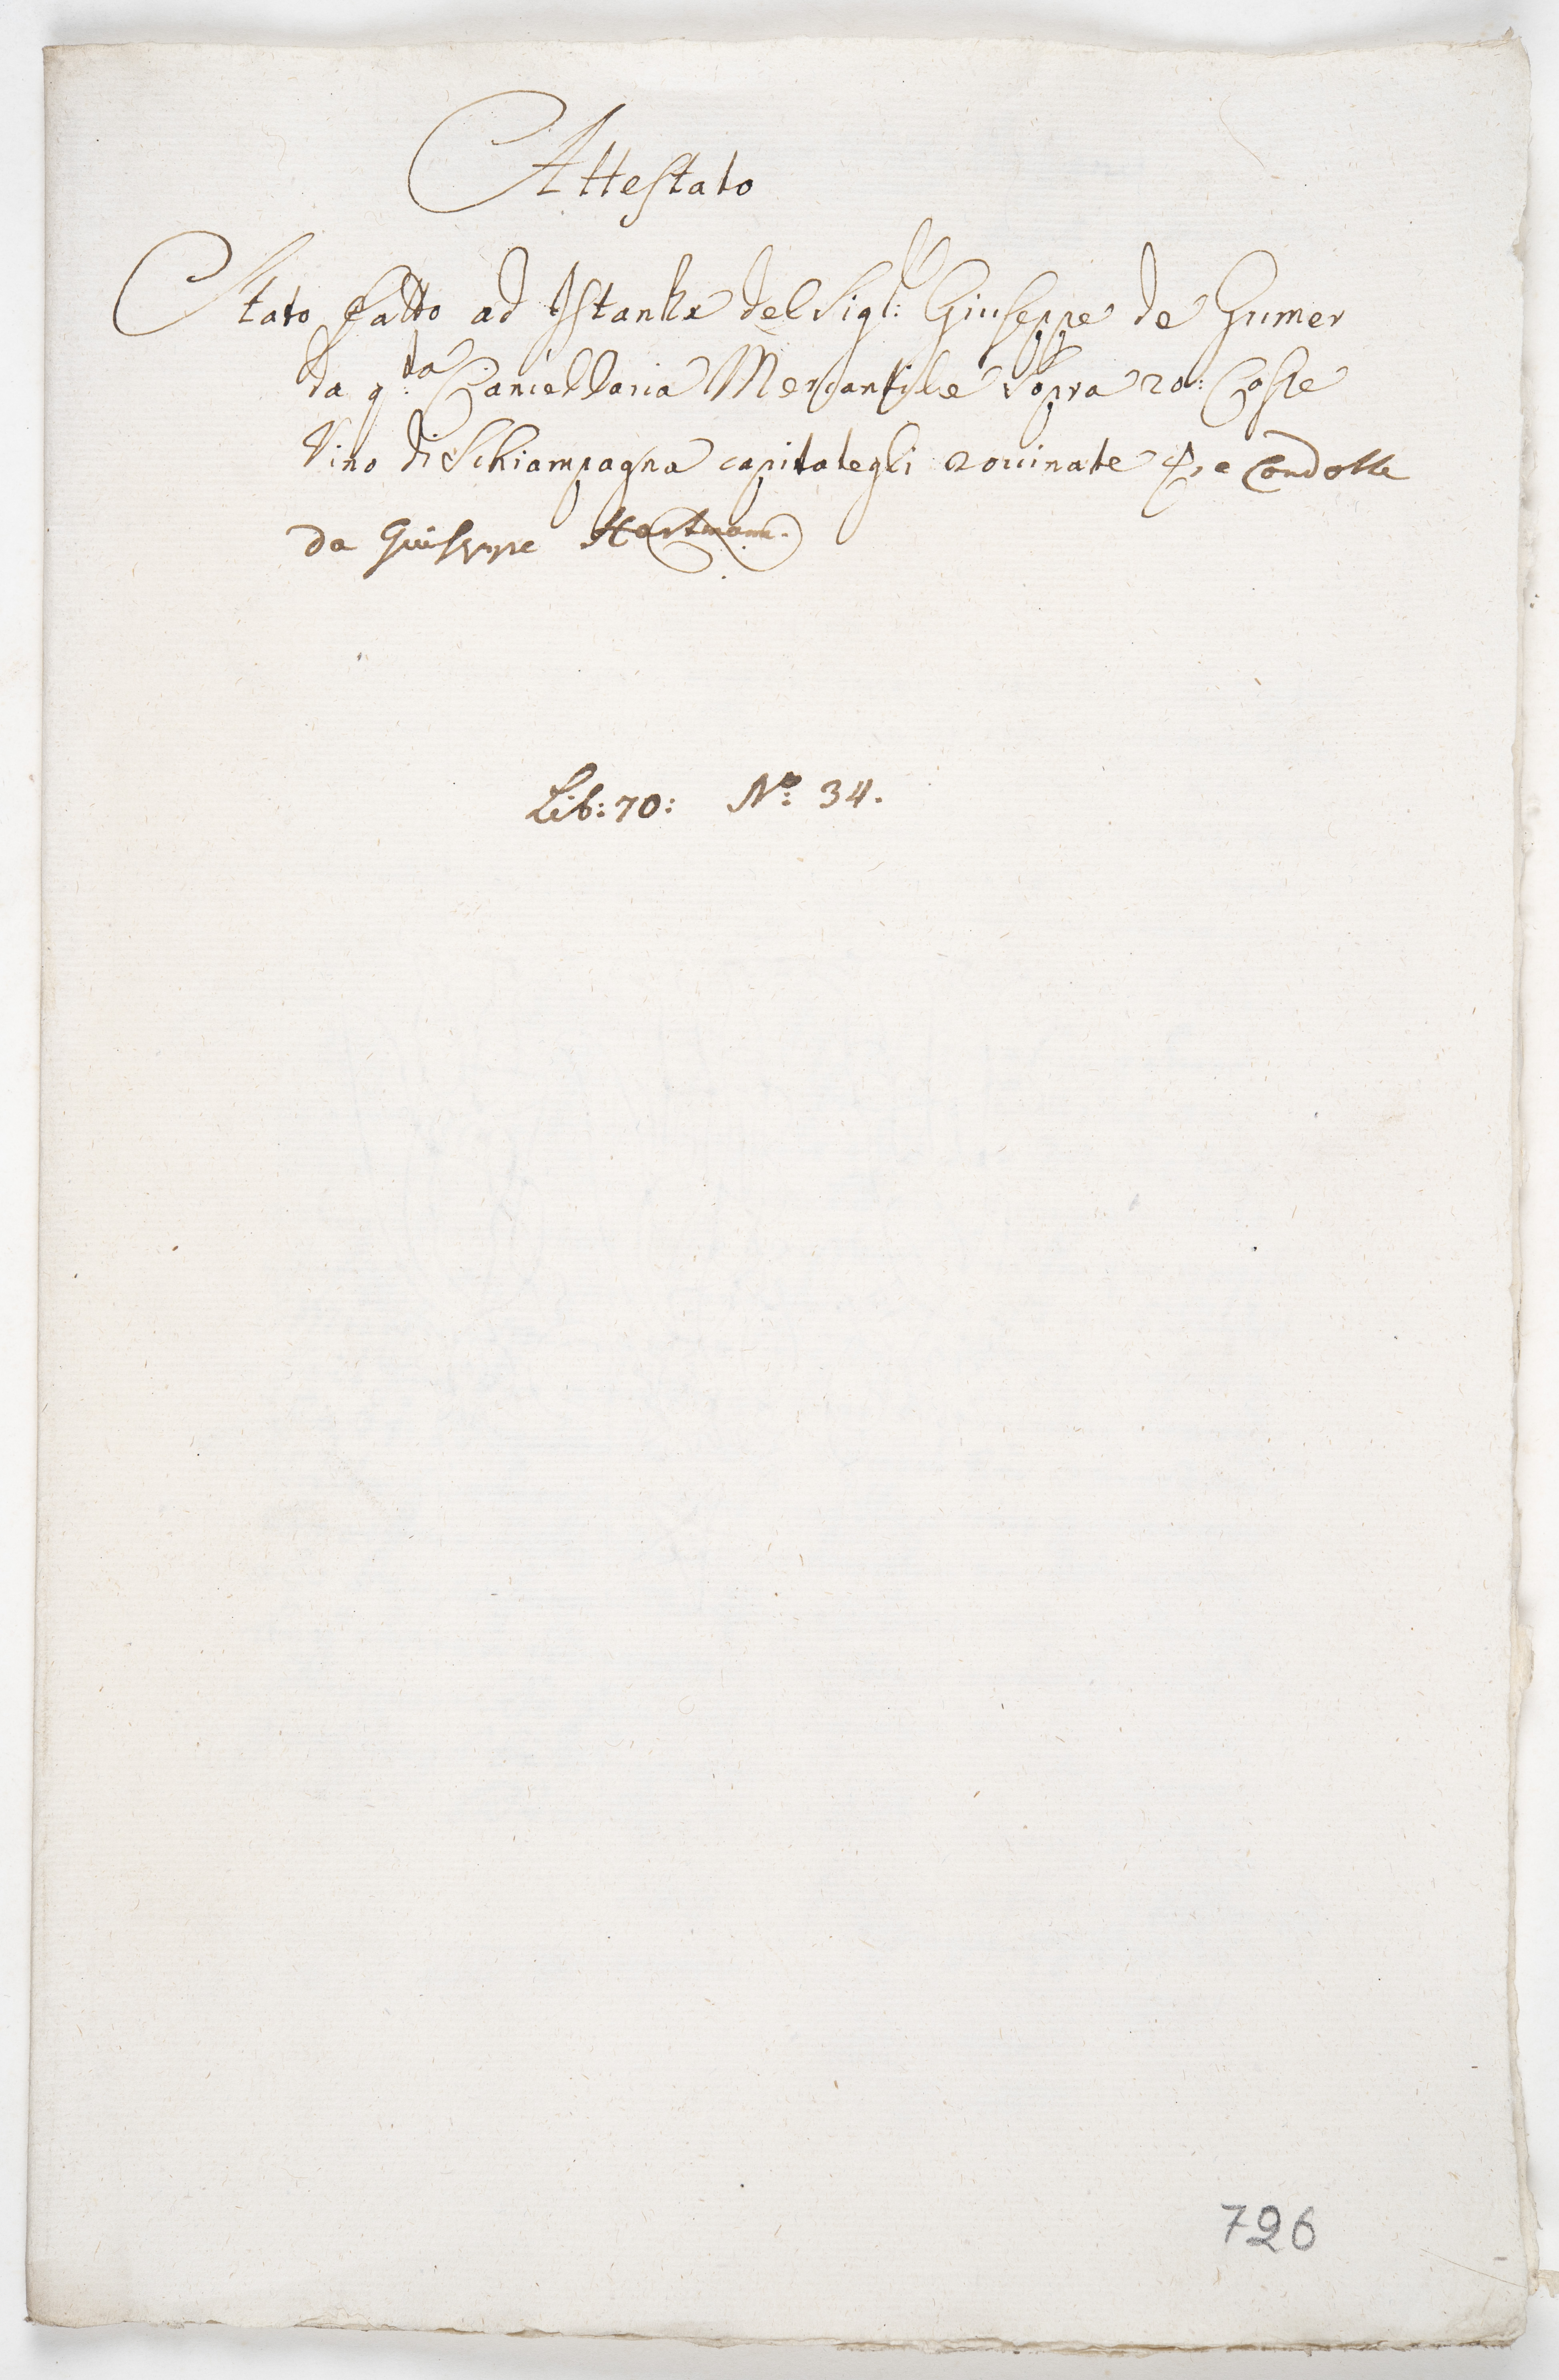 Attestato
Stato fatto ad Istanza del Sigl: Giuseppe de Gumer
da q:ta Canzellaria Mercantile sopra 20: Casse
Vino di Schiampagna capitategli rouinate &, e Condotte
da Guiseppe Hartmann.
Lib: 70: No: 34.
726